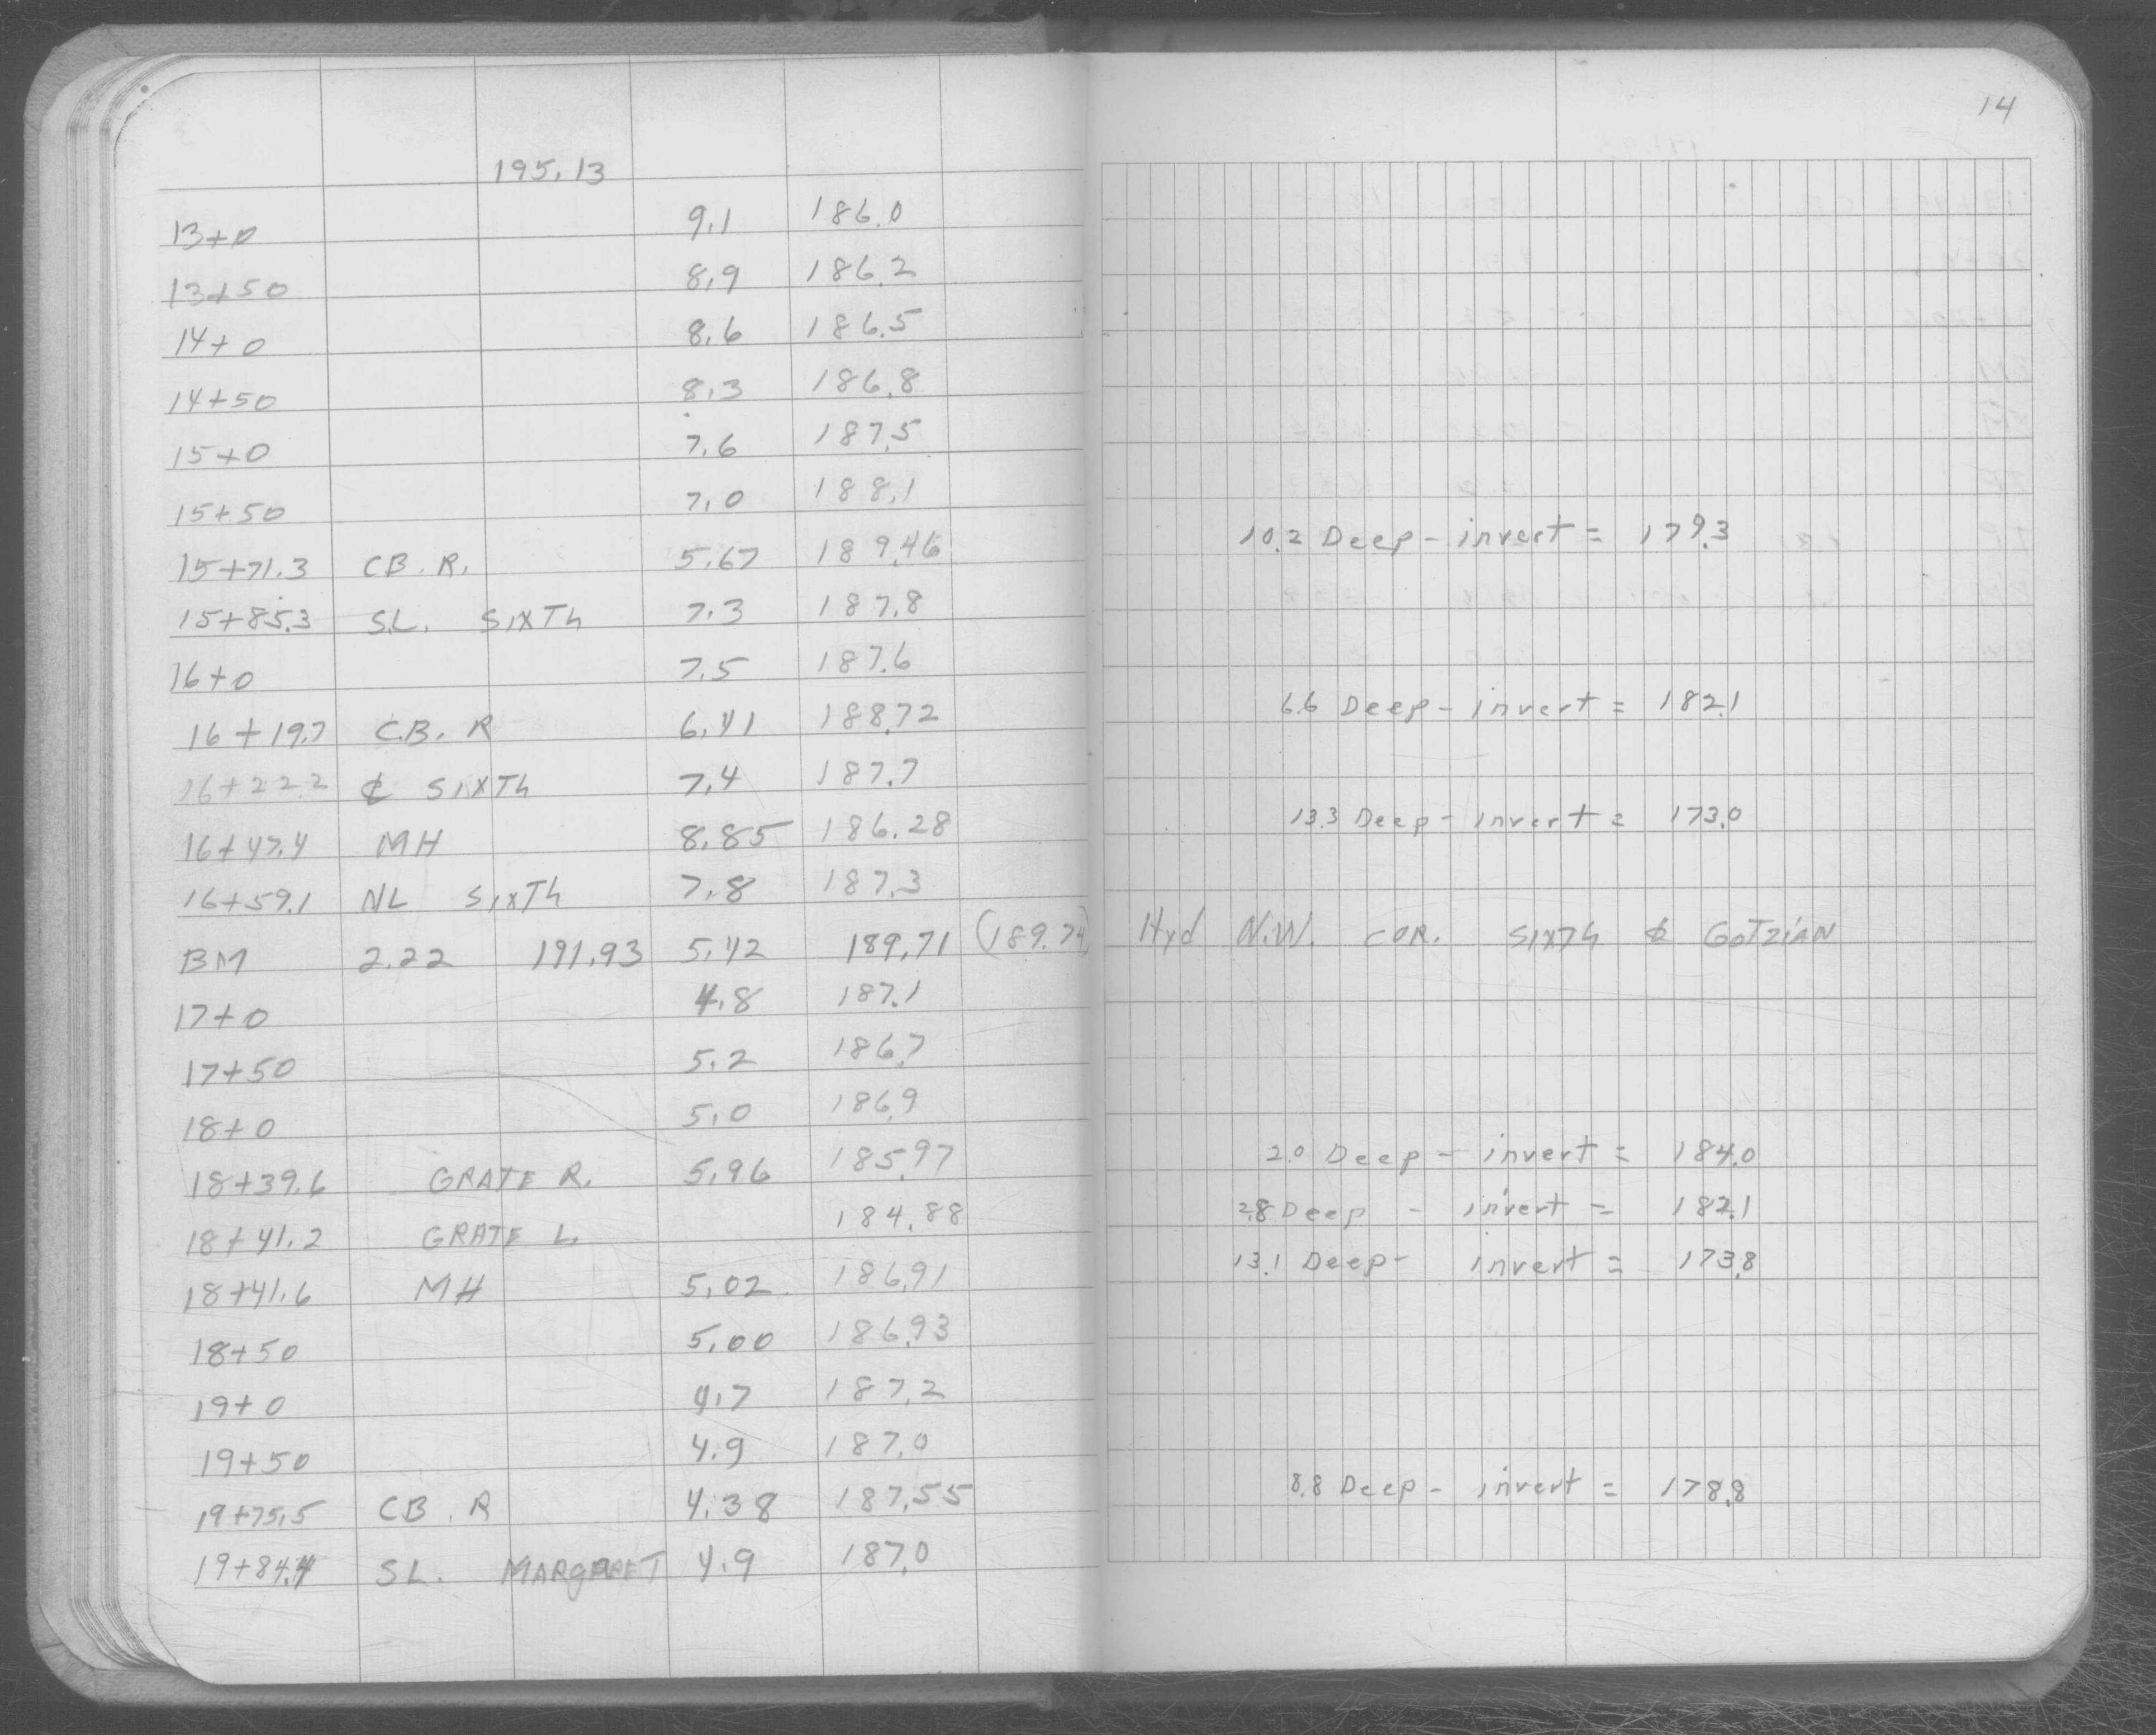 14
195.13
13+0 9.1 186.0
13+50 8.9 186.2
14+0 8.6 186.5
14+50 8.3 186.8
15+0 7.6 187.5
15+50 7.0 188.1
15+71.3 CB. R. 5.67 189.46 10.2 Deep - invert = 179.3
15+85.3 S.L. SIXTh 7.3 187.8
16+0 7.5 187.6
16+19.7 C.B. R 6.41 188.72 6.6 Deep - invert = 182.1
16+22.2 ℄ SIXTh 7.4 187.7
16+47.4 MH 8.85 186.28 13.3 Deep - invert = 173.0
16+59.1 NL SIXTh 7.8 187.3
BM 2.22 191.93 5.42 189.71 (189.74) Hyd N.W. COR. SIXTh & GOTZIAN
17+0 4.8 187.1
17+50 5.2 186.7
18+0 5.0 186.9
18+39.6 GRATE R. 5.96 185.97 2.0 Deep - invert = 184.0
18+41.2 GRATE L. 184.88 2.8 Deep - invert = 182.1
18+41.6 MH 5.02 186.91 13.1 Deep - invert = 173.8
18+50 5.00 186.93
19+0 4.7 187.2
19+50 4.9 187.0
19+75.5 CB. R 4.38 187.55 8.8 Deep - invert = 178.8
19+84.4 SL. MARGARET 4.9 187.0